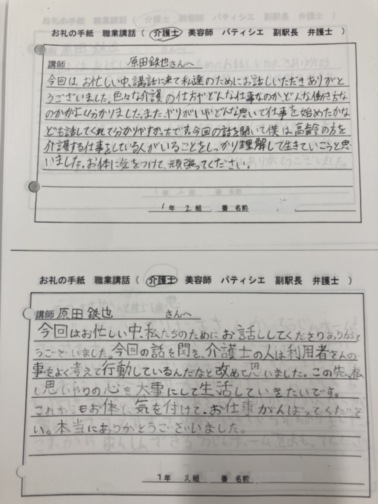 お礼の手紙 職業講話（ 介護士 美容師 パティシエ 副駅長 弁護士 ）
講師 原田鉄也さんへ
今回は、お忙しい中、講話に来て私達のためにお話しいただきありがと
うございました。色々な介護の仕方やどんな仕事なのかどんな働き方な
のかがよく分かりました。また、やりがいやどんな思いで仕事を始めたかな
ども話してくれて分かりやすかったです。今回の話を聞いて僕は、高齢の方を
介護する仕事をしている人がいることをしっかり理解して生きていこうと思
いました。お体に気をつけて、頑張ってください。
1年 2組 番 名前
お礼の手紙 職業講話（ 介護士 美容師 パティシエ 副駅長 弁護士 ）
講師 原田鉄也さんへ
今回はお忙しい中、私たちのために お話ししてくださりありがと
うございました。今回の話を聞き、介護士の人は利用者さんの
事をよく考えて行動しているんだなと改めて思いました。この先、私
も思いやりの心を大事にして生活していきたいです。
これからもお体に気を付けて、お仕事がんばってくださ
い。本当にありがとうございました。
1年 2組 番 名前